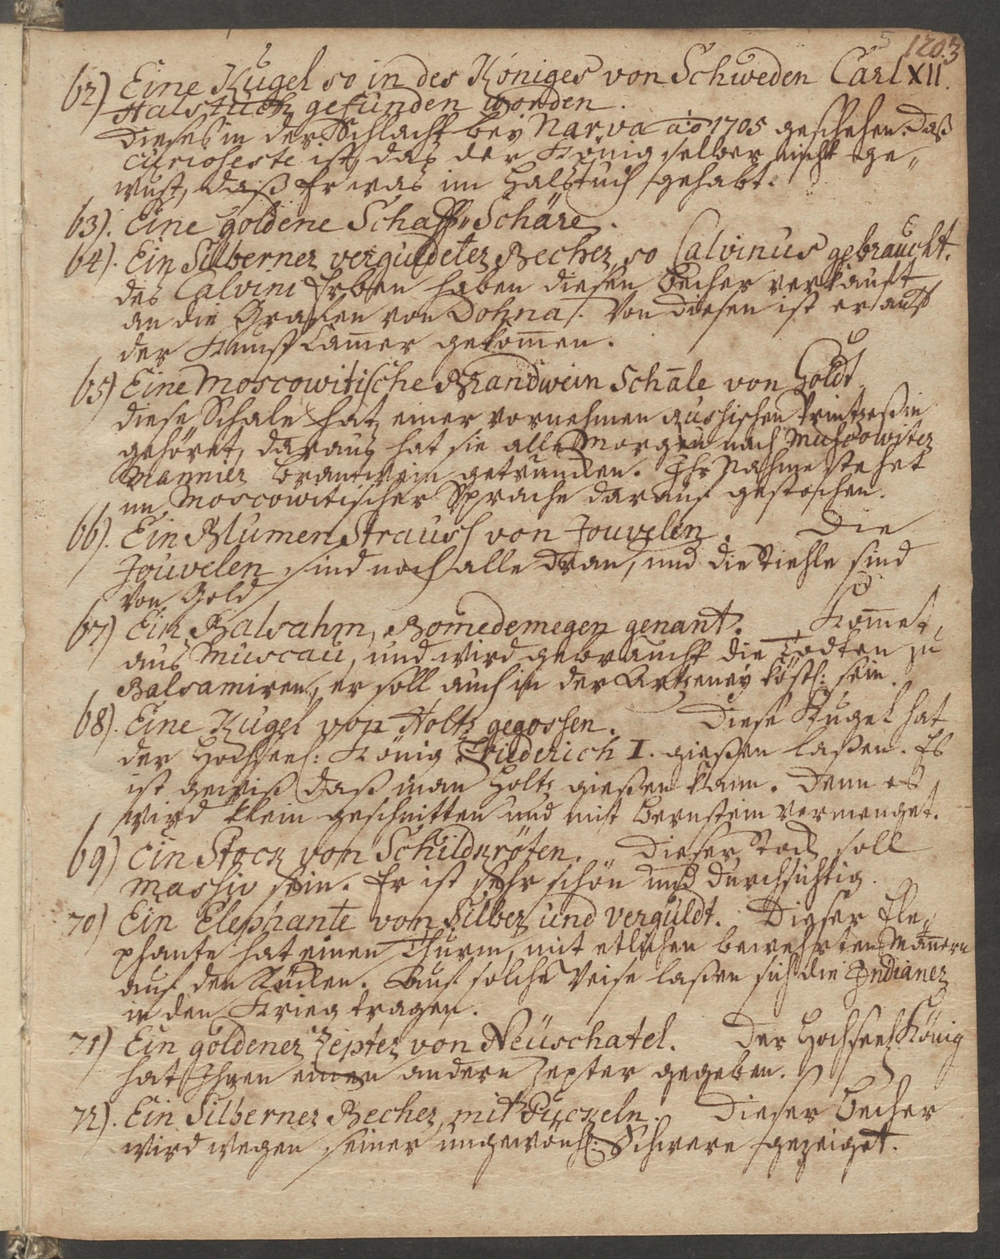 5 1203
62) Eine Kugel so in des Königes von Schweden Carl XII.
Halstuch gefunden worden.
Dieses in der Schlacht bey Narva ao 1705 geschehen. Daß
curioseste ist, daß der König selber nicht ge-
wust, daß Er was im Halstuch gehabt.
63). Eine goldene Schaff-Schäre.
64). Ein Silberner verguldeter Becher, so Calvinus gebraucht.
des Calvini Erben haben diesen Becher verkauft
an die Grafen von Dohna. Von diesen ist er auf
der Kunst Kam̄er gekom̄en.
65) Eine Moscowitische Brandwein Schale von Goldt
diese Schale hat einer vornehmen Russischen Printzeßin
gehöret, daraus hat sie alle Morgen nach Muscowiter
Mannier Brantwein getruncken. Ihr Nahme stehet
in Moscowitischer Sprache darauf gestochen.
66). Ein Blumen Strauss von Jouvelen. Die
Jouvelen sind noch alle dran, und die Stiehle sind
von Gold
67) Ein Balsahm, Bomedemegen genant. Kom̄et
aus Muscau, und wird gebraucht die Todten zu
Balsamiren, er soll auch in der Artzeney köstl: sein.
68). Eine Kugel von Holtz gegossen. Diese Kugel hat
der Hochseel: König Friederich I. gießen laßen. Es
ist gewiß daß man Holtz gießen kann. Denn es
wird klein geschnitten und mit Bernstein vermenget.
69) Ein Stock von Schildkröten. Dieser Stock soll
massiv sein. Er ist sehr schön und durchsichtig.
70) Ein Elephante von Silber und verguldt. Dieser Ele-
phante hat einen Thurm, mit etlichen bewehrten Män̄ern
auf den Rücken. Auf solche Weise laßen sich die Indianer
in den Krieg tragen.
71) Ein goldener Zepter von Neuschatel. Der Hochseel König
hat Ihnen einen andern Zepter gegeben.
72). Ein Silberner Becher, mit Puckeln. Dieser Becher
wird wegen seiner ungewönl: Schwere gezeiget.